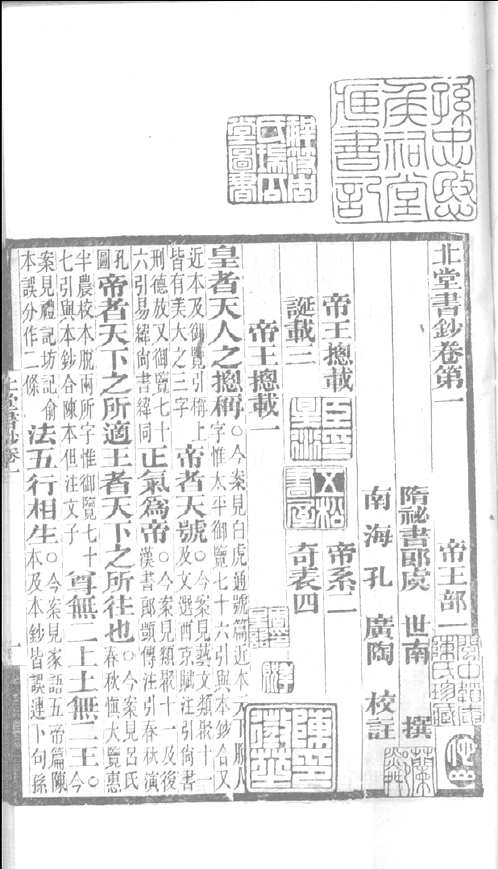 北堂書鈔卷第一
帝王部一
隋祕書郎虞世南撰
南海孔廣陶校註
帝王總載一 帝系二
誕載三 奇表四
帝王總載一
皇者天人之總稱〇今案見白虎通號篇近本天下脫人
字惟太平御覽七十六引與本鈔合又
近本及御覽引稱上
皆有美大之三字 帝者天號〇今案見藝文類聚十一
及文選西京賦注引尙書
刑德放又御覽七十
六引易緯尙書緯同 正氣爲帝〇今案見類聚十一及後
漢書郎顗傳注引春秋演
孔
圖 帝者天下之所適王者天下之所往也〇今案見呂氏
春秋愼大覽惠
半農校本脫兩所字惟御覽七十
七引與本鈔合陳本但注文子 尊無二上土無二王〇今
案見禮記坊記俞
本誤分作二條 法五行相生〇今案見家語五帝篇陳
本及本鈔皆誤連下句孫
孫忠愍侯祠堂藏書記